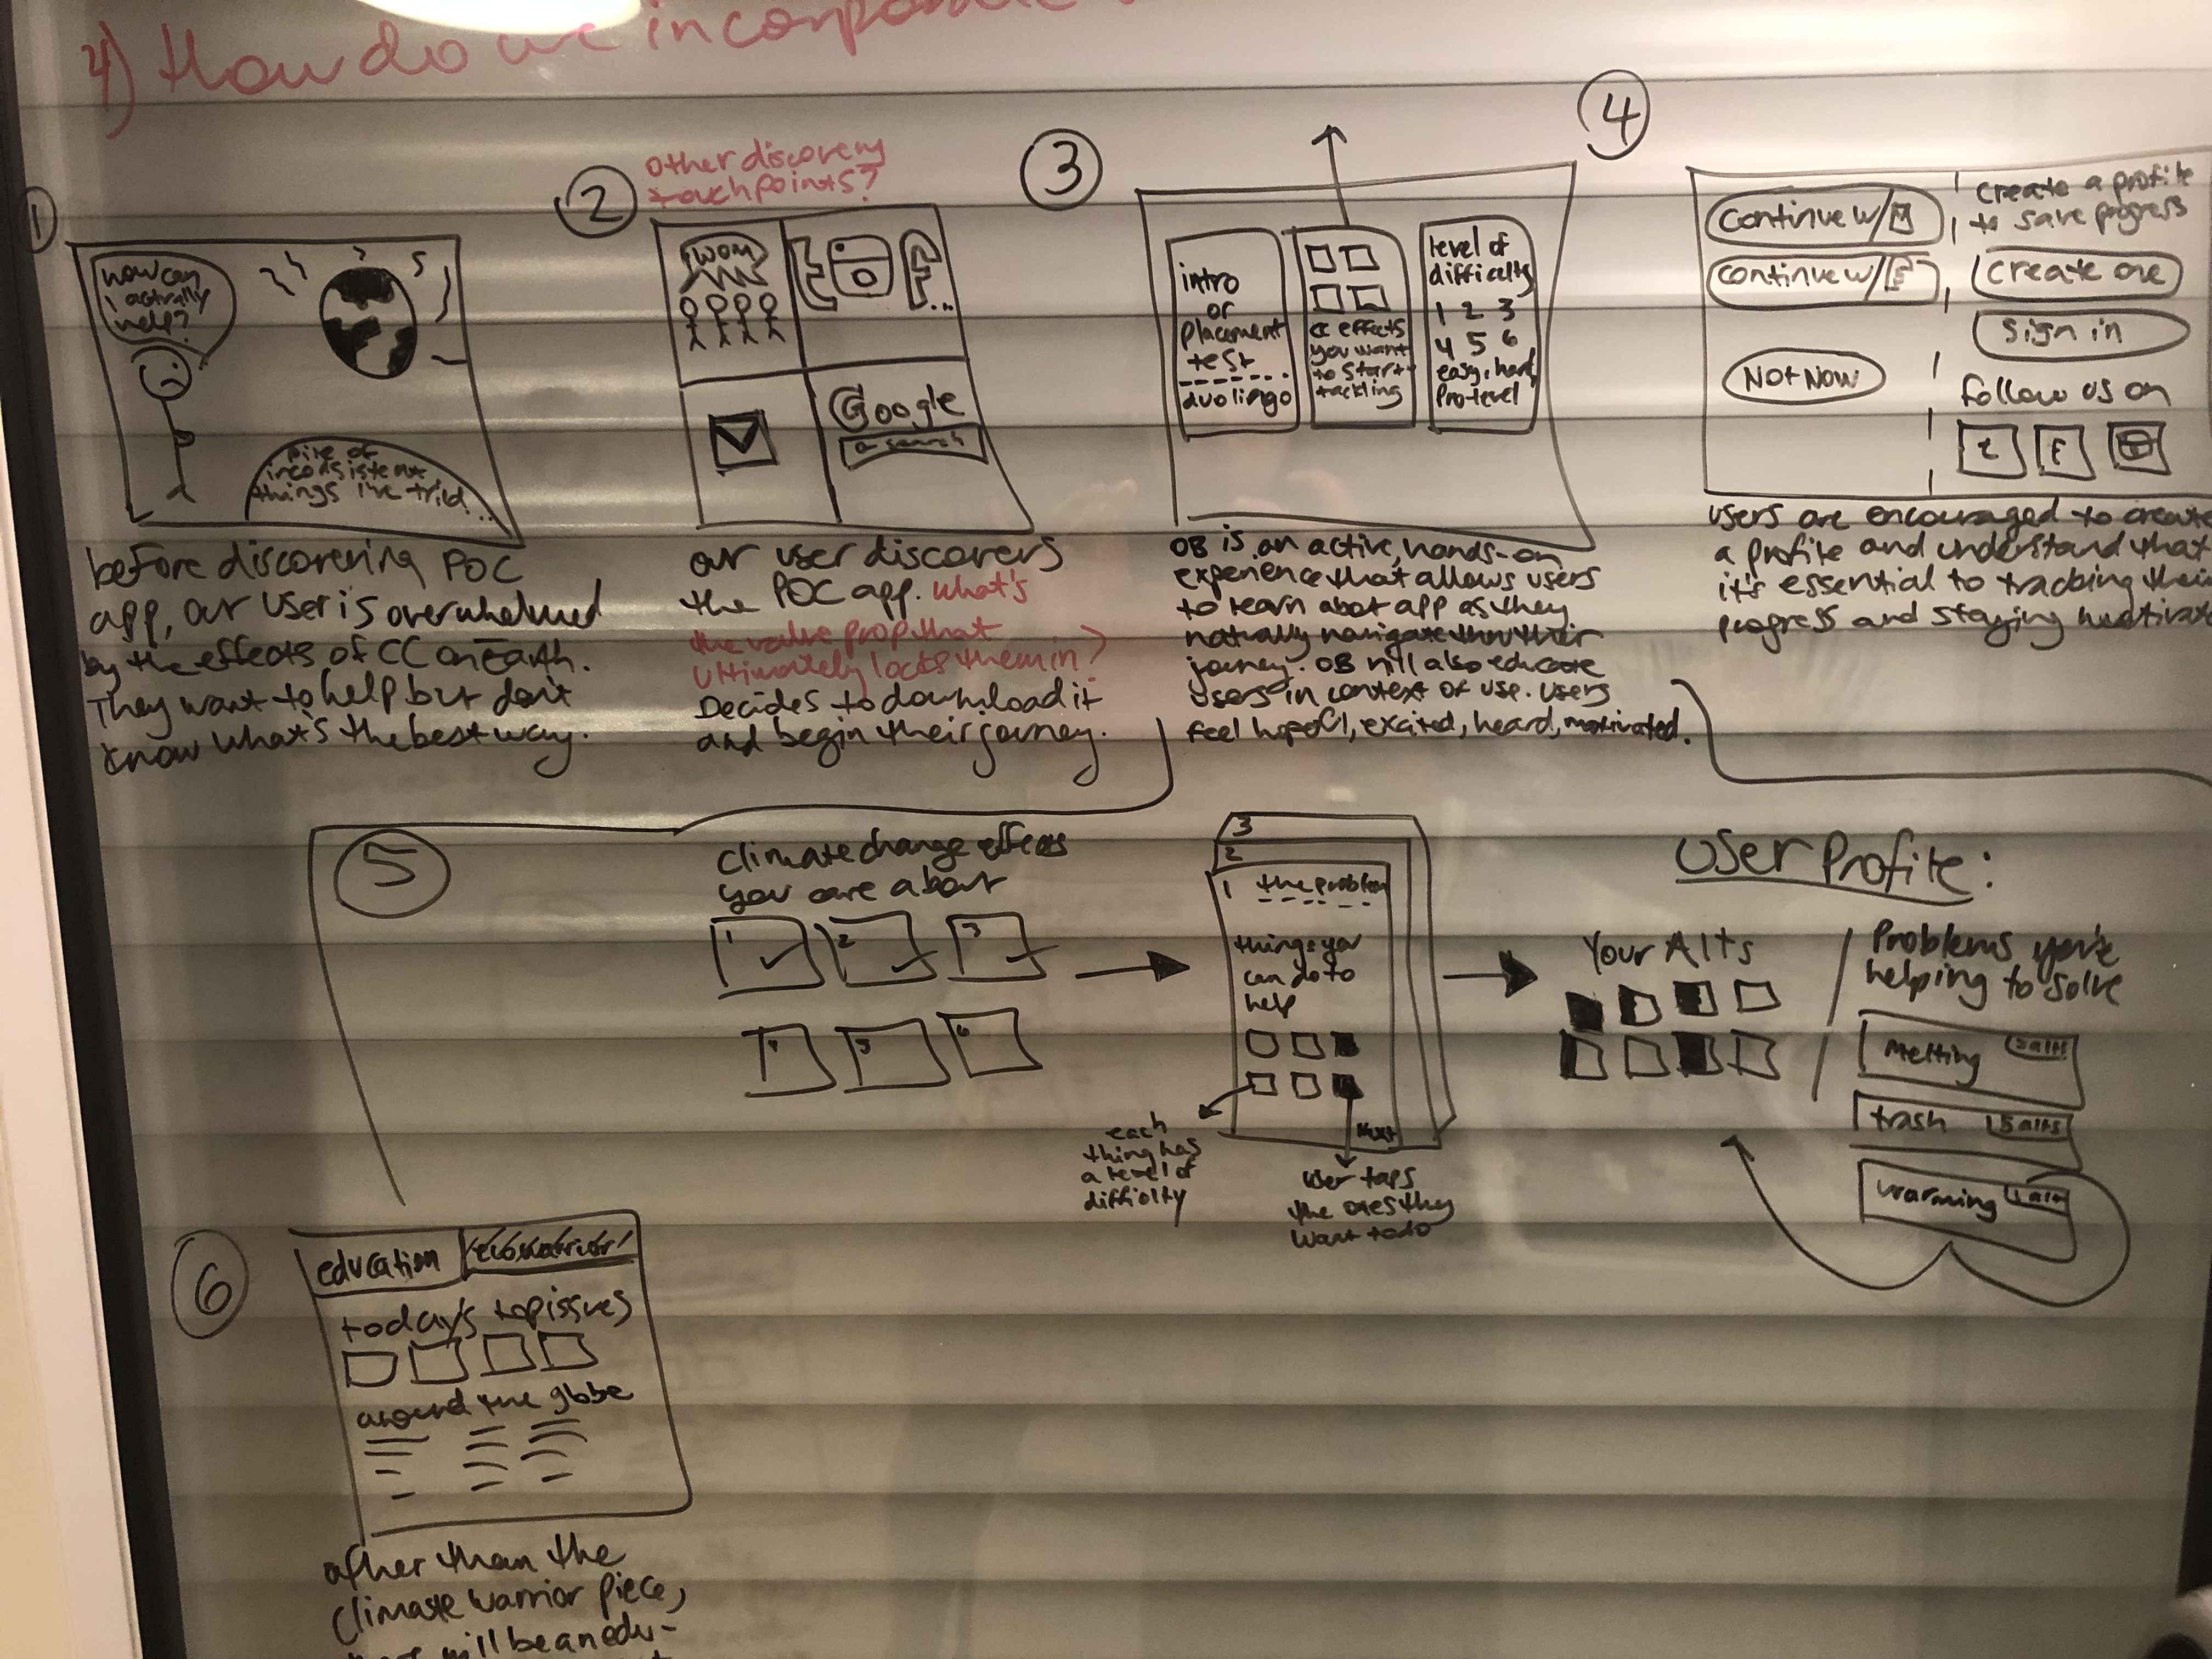 4) How do we incorporate
1
how can
I actually
help?
pile of
inconsistent
things I've tried...
before discovering POC
app, our user is overwhelmed
by the effects of CC on Earth.
They want to help but don't
know what's the best way.
2
other discovery
touchpoints?
WOM
...
Google
search
our user discovers
the POC app. what's
the value prop that
ultimately locks them in?
Decides to download it
and begin their journey.
3
intro
or
placement
test
duolingo
CC effects
you want
to start
tackling
level of
difficulty
1 2 3
4 5 6
easy, hard,
pro level
OB is an active, hands-on
experience that allows users
to learn about app as they
naturally navigate thru their
journey. OB will also educate
users in context of use. users
feel hopeful, excited, heard, motivated.
4
Continue w/
continue w/
Not Now
create a profile
to save progress
create one
sign in
follow us on
t F
users are encouraged to create
a profile and understand that
it's essential to tracking their
progress and staying motivate
5
Climate change effects
you care about
1 2 3
4 5 6
3
2
1 the problem
things you
can do to
help
Next
each
thing has
a level of
difficulty
user taps
the ones they
want to do
User Profile:
Your Alts
Problems you're
helping to solve
Melting
trash 5 alts
warming 1 alt
6
education
today's top issues
around the globe
other than the
climate warrior piece,
will be an edu-